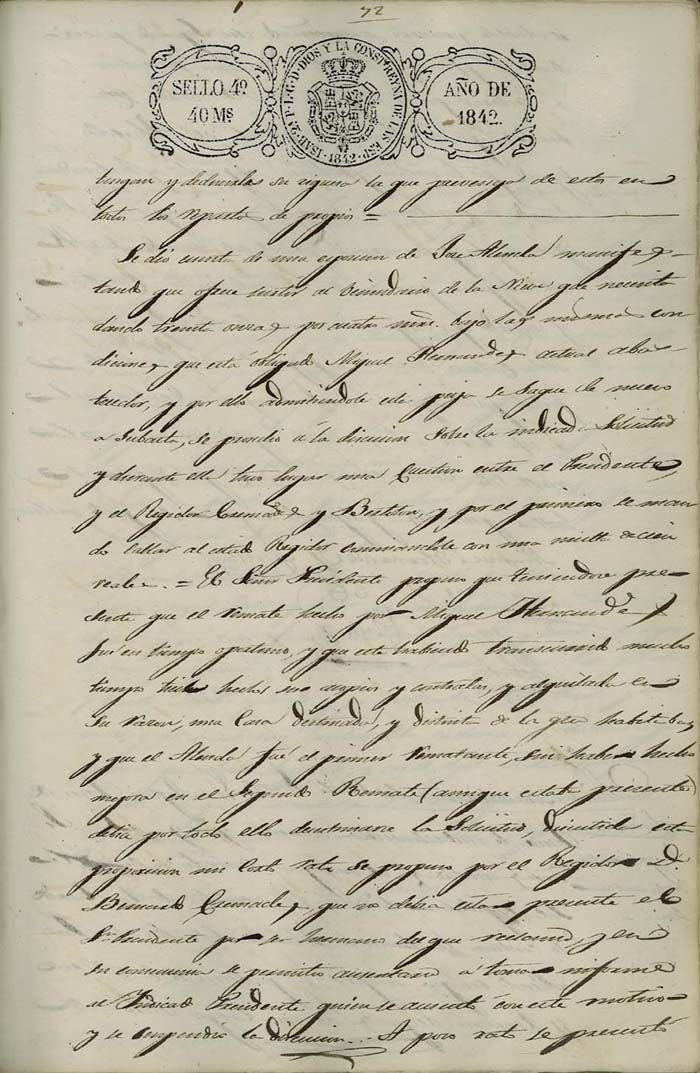 72
SELLO 4º 40 Ms
ISAB. 2ª P. L. G. D. DIOS Y LA CONST. REYNA DE LAS ESP. 1842
AÑO DE 1842.
tengan y la que prevenga de estos en
todos los repartos de propios =
Se dio cuenta de una esposicion de Jose Alenda manifes-
tando que ofrece surtir al Vecindario de la Nieve que necesite
dando treinta onzas por cuatro mrs. bajo las mismas con
diciones que está obligado Miguel Hernandez actual abas-
tecedor, y por ello admitiendole esta puja se saque de nuevo
a Subasta, se procedio á la discusion sobre la indicada Solicitud
y durante ella tuvo lugar una Cuestion entre el Presidente,
y el Regidor Cremades y Botella, y por el primero se man
do callar al citado Regidor conminandole con una multa de cien
reales. = El Señor Presidente propuso que teniendose pre-
sente que el remate hecho por Miguel Hernandez
fué en tiempo oportuno, y que este habiendo transcurrido mucho
tiempo tiene hechos sus acopios y contratas, y alquilada en
su razon, una Casa destinada, y distinta de la que habitaba,
y que el Alenda fué el primer rematante, sin haber hecho
mejora en el Segundo Remate (aunque estaba presente)
debia por todo ello desestimarse la Solicitud, discutida esta
proposicion un corto rato se propuso por el Regidor D.
Cremades, que no debia estar presente el
Sr. Presidente por ser hermano del que reclamó, y en
su consecuencia se permitio ausentarse á tomar informe
al Indicado Presidente quien se ausentó con este motivo
y se suspendió la discusion. A poco rato se presentó